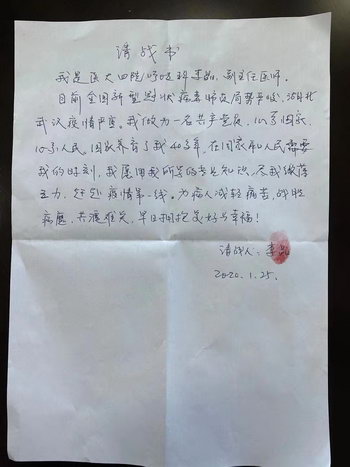 请战书
我是医大四院呼吸科李晶，副主任医师。
目前全国新型冠状病毒肺炎局势严峻，湖北
武汉疫情严重。我做为一名共产党员，心系国家，
心系人民。国家养育了我40多年，在国家和人民需要
我的时刻，我愿用我所学的专业知识，尽我绵薄
之力，赶赴疫情第一线。为病人减轻痛苦，战胜
病魔，共渡难关，早日拥抱美好与幸福！
请战人：李晶
2020.1.25.